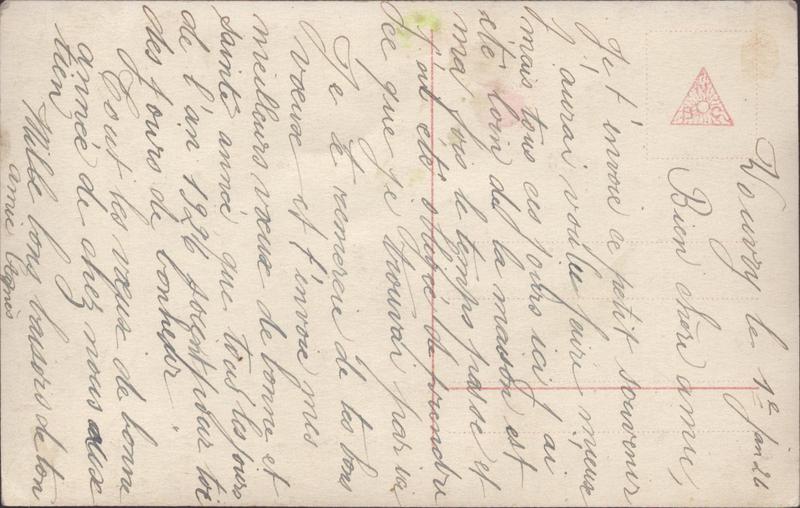 Vouvry le 1e Jan 26
Bien chère amie,
Je t'envoie ce petit souvenir
j'aurai voulu faire mieux
mais tous ces jours ici j'ai
été loin de la maison et
ma fois le temps passe et
j'ai été obligé de prendre
ce que je trouvai par ici
Je te remercie de tes bons
voeux et t'envoie mes
meilleurs voeux de bonne et
sainte année que tous les jours
de l'an 1926 soient pour toi
des jours de bonheur.
Tout les voeux de bonne
année de chez nous aux
tien
Mille bons baisers de ton
amie Agnès